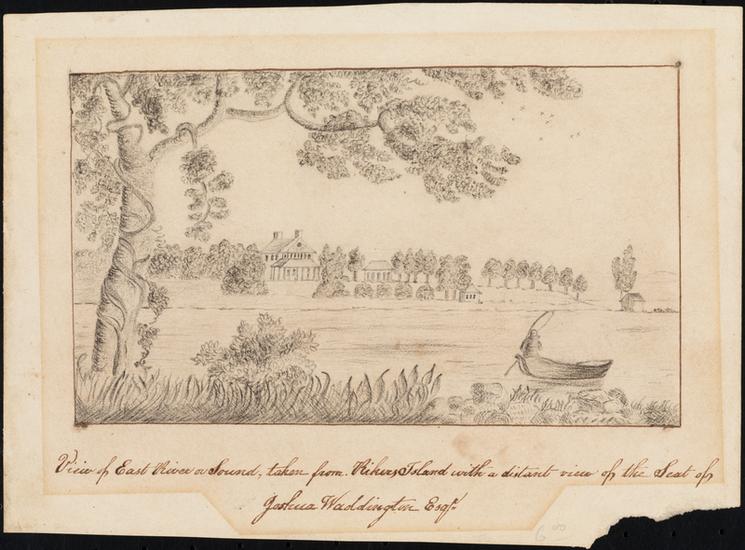 View of East River or Sound, taken from Rikers Island with a distant view of the Seat of
Joshua Waddington Esqr
6 00